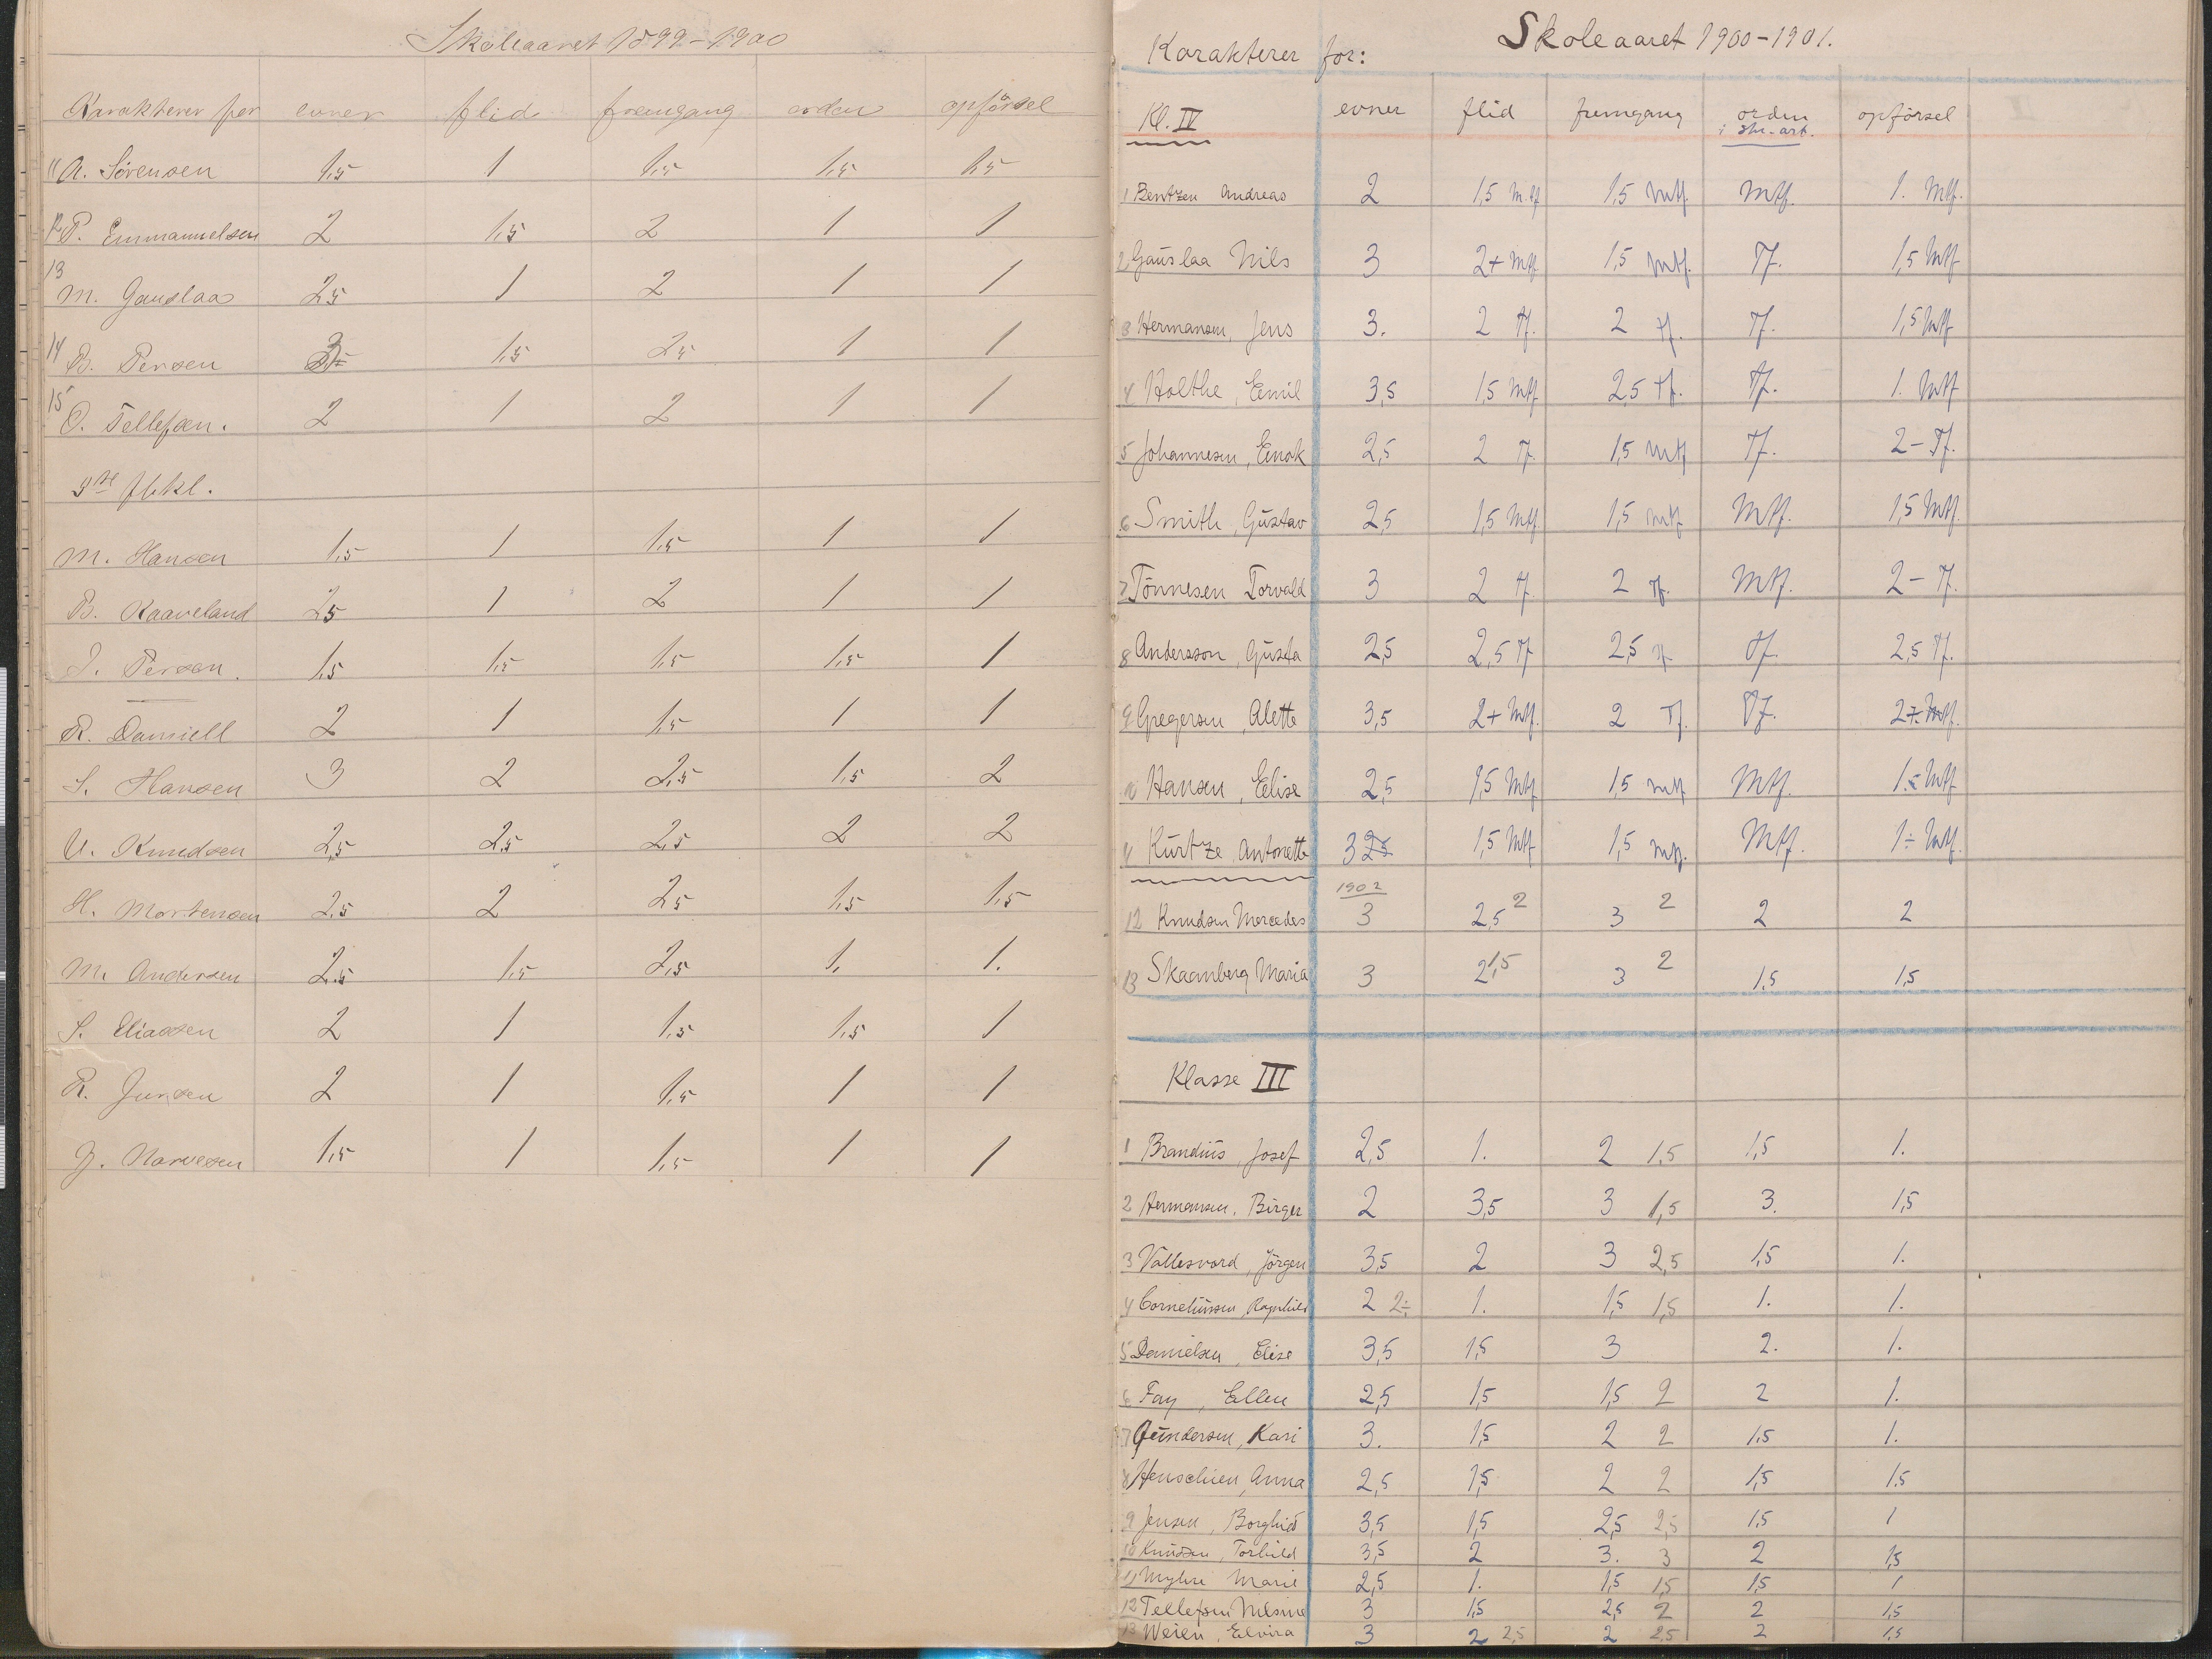 Skoleaaret 1899-1900
Karakterer for evner flid fremgang orden opförsel
11 A. Sörensen 1,5 1 1,5 1,5 1,5
12 P. Emmanuelsen 2 1,5 2 1 1
13 M. Gauslaa 2,5 1 2 1 1
14 B. Persen 3 1,5 2,5 1 1
15 O. Tellefsen. 2 1 2 1 1
M. Hansen 1,5 1 1,5 1 1
B. Kaaveland 2,5 1 2 1 1
J. Person. 1,5 1,5 1,5 1,5 1
R. Daniell 2 1 1,5 1 1
S. Hansen 3 2 2,5 1,5 2
U. Knudsen 2,5 2,5 2,5 2 2
H. Mortensen 2,5 2 2,5 1,5 1,5
M. Andersen 2,5 1,5 2,5 1. 1.
S. Eliassen 2 1 1,5 1,5 1
R. Jensen 2 1 1,5 1 1
J. Narvesen 1,5 1 1,5 1 1
Skoleaaret 1900-1901.
Karakterer for:
Kl. IV evner flid fremgang orden i skr.-arb. opförsel
1 Bentzen Andreas 2 1,5 Mtf 1,5 Mtf. Mtf. 1. Mtf.
2 Gauslaa Nils 3 2+ Mtf 1,5 Mtf. Tf. 1,5 Mtf
3 Hermansen, Jens 3. 2 Tf. 2 Tf. Tf. 1,5 Mtf
4 Holthe, Emil 3,5 1,5 Mtf 2,5 Tf. Tf. 1. Mtf
5 Johannesen, Enok 2,5 2 Tf. 1,5 Mtf Tf. 2- Tf.
6 Smith, Gustav 2,5 1,5 Mtf. 1,5 Mtf Mtf. 1,5 Mtf.
7 Tönnesen Torvald 3 2 Tf. 2 Tf. Mtf. 2- Tf.
8 Andersson, Gusta 2,5 2,5 Tf 2,5 Tf Tf. 2,5 Tf.
9 Gregersen, Alette 3,5 2+ Mtf. 2 Tf. Tf. 2+ Mtf.
10 Hansen, Elise 2,5 1,5 Mtf 1,5 Mtf Mtf. 1.5 Mtf
11 Kurtze, Antonette 3 2,5 1,5 Mtf 1,5 Mtf. Mtf. 1÷ Mtf.
1902
12 Knudsen Mercedes 3 2,5 2 3 2 2 2
13 Skaanberg Maria 3 2 1,5 3 2 1,5 1,5
Klasse III
1 Brandius, Josef 2,5 1. 2 1,5 1,5 1.
2 Hermansen, Birger 2 3,5 3 1,5 3. 1,5
3 Vallesverd, Jörgen 3,5 2 3 2,5 1,5 1.
4 Corneliussen, Ragnhild 2 2÷ 1. 1,5 1,5 1. 1.
5 Danielsen, Elise 3,5 1,5 3 2. 1.
6 Fay, Ellen 2,5 1,5 1,5 2 2 1.
7 Gundersen, Kari 3. 1,5 2 2 1,5 1.
8 Henschien, Anna 2,5 1,5 2 2 1,5 1.5
9 Jensen, Borghild 3,5 1,5 2,5 2,5 1,5 1
10 Knudsen, Torhild 3,5 2 3. 3 2 1,5
11 Myhre Marie 2,5 1. 1,5 1,5 1,5 1
12 Tellefsen Nilsine 3 1,5 2,5 2 2 1,5
13 Weien, Elvira 3 2 2,5 2 2,5 2 1,5